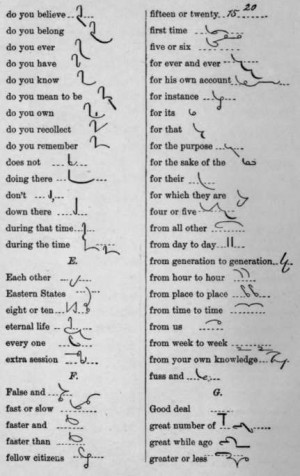 do you believe
do you belong
do you ever
do you have
do you know
do you mean to be
do you own
do you recollect
do you remember
does not
doing there
don't
down there
during that time
during the time
E.
Each other
Eastern States
eight or ten
eternal life
every one
extra session
F.
False and
fast or slow
faster and
faster than
fellow citizens
fifteen or twenty 15 20
first time
five or six
for ever and ever
for his own account
for instance
for its
for that
for the purpose
for the sake of the
for their
for which they are
four or five
from all other
from day to day
from generation to generation
from hour to hour
from place to place
from time to time
from us
from week to week
from your own knowledge
fuss and
G.
Good deal
great number of
great while ago
greater or less